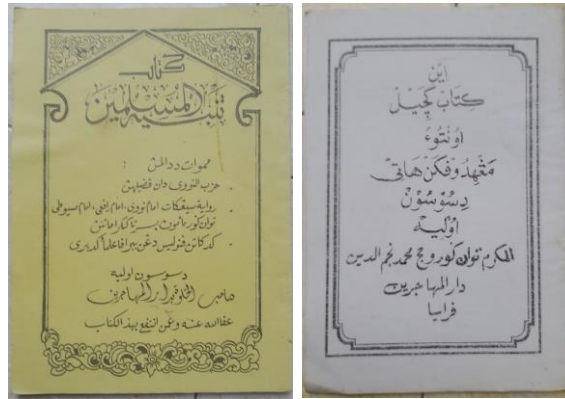 كتاب
تنبيه المسلمين
مموات ددالمڽ :
. حزب النووي دان فضيلهڽ
. رواية سيڠكات امام نووي، امام رفعي، امام سيوطي
توان ڬورو مأمون بسرتا كرامتڽ
. 
دسوسون اوليه
صاحب دار المهاجرين
عفا الله عنه وعمن انتفع بهذا الكتاب
اين
كتاب كچيل
اونتوء
مڠهيدوفكن هاتي
دسوسون
اوليه
المكرم توان ڬورو حج محمد نجم الدين
دار المهاجرين
فرايا